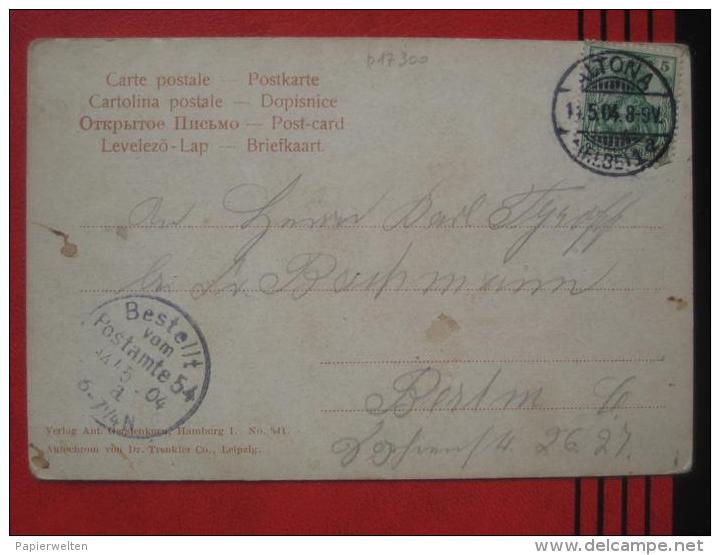 p17300
Carte postale — Postkarte
Cartolina postale — Dopisnice
Открытое Письмо — Post-card
Levelező-Lap — Briefkaart.
5
ALTONA
5.04. 8-9V.
a
(ELBE) 1
An Herrn Karl Tyroff
br. Fr. Bachmann
Berlin C
26.27.
Bestellt
vom
Postamte 54
14/5 04
a
6-7 1/4 N
Verlag Ant. Hamburg 1. No. 841.
Autochrom von Dr. Trenkler Co., Leipzig.
Papierwelten
www.delcampe.net